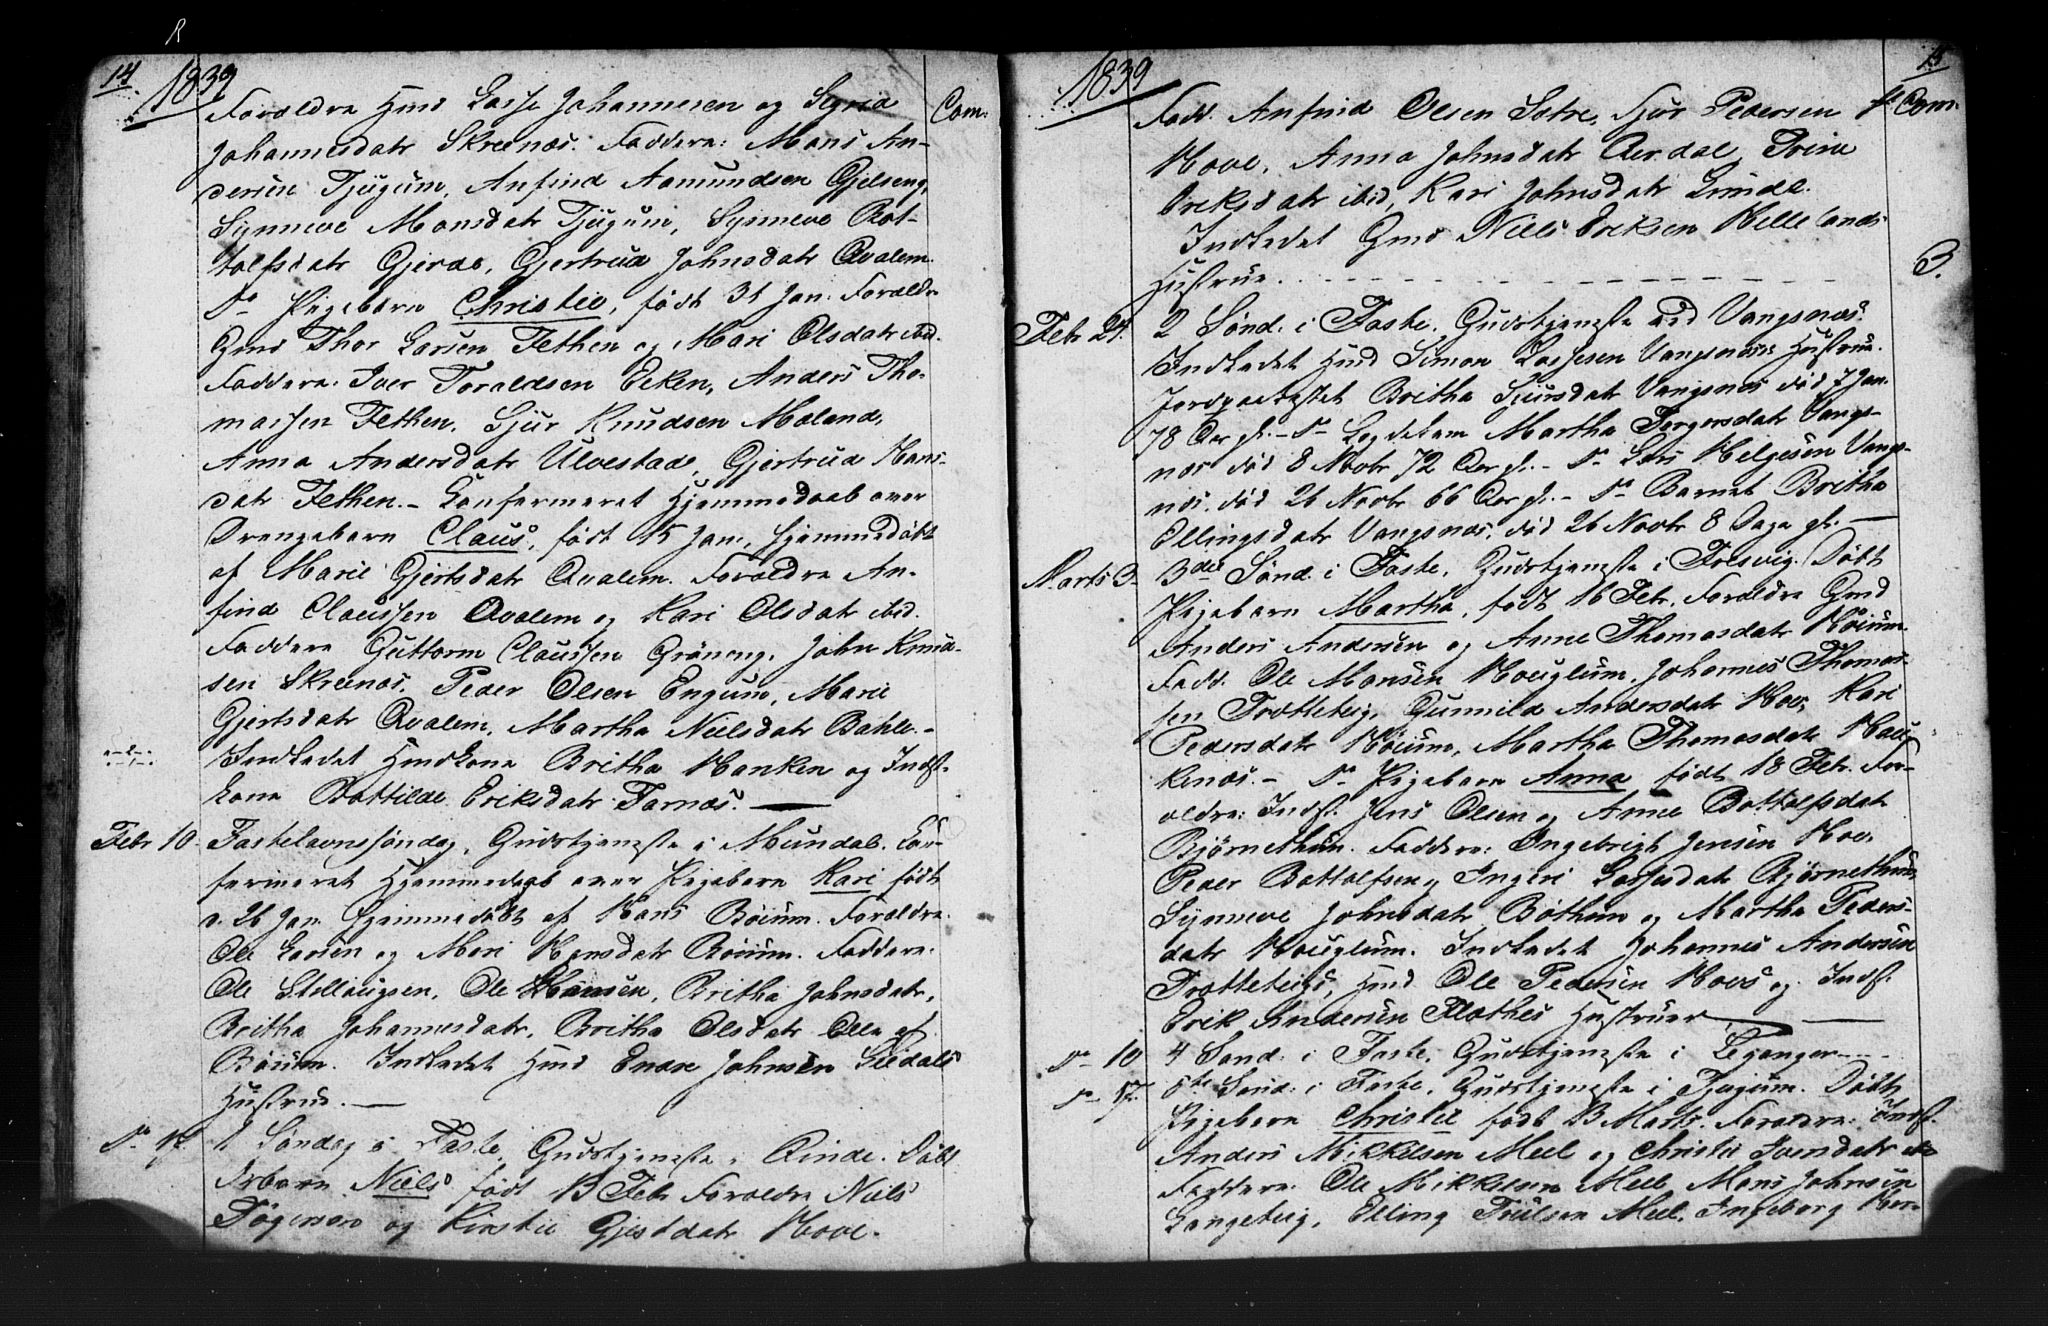 14.
1839
Com.
Foroldre Hmd Lasse Johannesen og Sygrid
Johannesdatr Skreenæs. Faddere: Mons An-
dersen Tjugum, Anfind Aamundsen Gjelseng,
Synneve Monsdatr Tjugum, Synneve Bot-
tolfsdatr Gjerde, Gjertrud Johnsdatr Qvalem.
Do Pigebarn Christie, født 31 Jan: Foroldre
Gmd Thor Larsen Fethen og Mari Olsdatr ibid.
Faddere: Iver Toraldsen Eeken, Anders Tho-
massen Fethen, Sjur Knudsen Moland,
Anna Andersdatr Ulvestad, Gjertrud Hans-
datr Fethen. - Confermeret Hjemmedaab over
Drengebarn Claus, født 15 Jan, hjemmedøbt
af Marie Gjertsdatr Qvalem. Foroldre An-
find Claussen Qvalem og Kari Olsdatr ibid.
Faddere Guttorm Claussen Grøneng, John Knud-
sen Skreenæs, Peder Olsen Engum, Marie
Gjertsdatr Qvalem, Martha Nielsdatr Bahle. -
Indledet Hmdkone Britha Hanken og Indst-
kone Bottilde Eriksdatr Farnæs.
Febr 10. Fastelavnssøndag, Gudstjeneste i Mundal. Con-
fermeret Hjemmedaab over Pigebarn Kari født
d. 26 Jan hjemmedøbt af Hans Bøium. Foroldre:
Ole Larsen og Mari Hansdatr Bøium. Faddere:
Ole Stellaugsen, Ole Hansen, Britha Johnsdatr,
Britha Johannesdatr, Britha Olsdatr Alle af
Bøium. Indledet Hmd Endre Johnsen
Hustrue.
Do 17. 1 Søndag i Faste, Gudstjeneste i Rinde. Døbt
Niels født 13 Febr Foroldre Niels
og Kirstie Hove.
1839
15
Fadd. Anfind Olsen Sotre, Sjur Pedersen
Com.
Hove, Anna Johnsdatr Aardal, Trine
Eriksdatr ibid, Kari Johnsdatr Grinde.
Indledet Gmd Niels Eriksen Hellelands
Hustrue.
3.
Febr 24. 2 Sønd: i Faste. Gudstjeneste ved Vangsnæs.
Indledet Hmd Simon Lassesen Vangsnæs: Hustrue.
Jordpaakastet Britha Sjursdatr Vangsnæs død 7 Jan.
78 Aar gl. - Do Legdelem Martha Torgersdatr Vangs-
næs død 8 Novbr 72 Aar gl. - Do Lars Helgesen Vangs-
næs, død 26 Novbr 66 Aar gl. - Do Barnet Britha
Ellingsdatr Vangsnæs, død 26 Novbr 8 Dage gl.
Marts 3. 3die Sønd: i Faste, Gudstjeneste i Fresvig. Døbt
Pigebarn Martha, født 16 Febr. Foroldre Gmd
Anders Andersen og Anne Thomasdatr Høium.
Fadd. Ole Monsen Houglum, Johannes Thomas-
sen Trotteteig, Gunnild Andersdatr Hov, Kari
Pedersdatr Høium, Martha Thomasdatr
- Do Pigebarn Anna født 18 Febr. For-
oldre: Indst. Jens Olsen og Anne Bottolfsdatr
Bjørnethun. Faddere: Ingebrigt Jensen Hov,
Peder Bottolfsen, Ingeri Larsesdatr Bjørnethun,
Synneve Johnsdatr Bøthun og Martha Peders-
datr Houglum. Indledet Johannes Andersen
Trotteteigs, Hmd Ole Pedersen Hovs og Indst.
Erik Andersen Flothes Hustruer
Do 10 4 Sønd: i Faste, Gudstjeneste i Leganger
Do 17. 5te Sønd: i Faste, Gudstjeneste i Tjugum. Døbt
Pigebarn Christie født 13 Marts. Foroldre: Indst.
Anders Mikkelsen Meel og Christie Iversdatr ibid
Faddere: Ole Mikkelsen Meel, Mons Johnsen
Langeteig, Elling Meel, Ingeborg